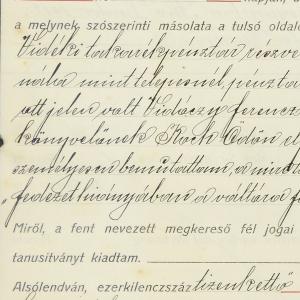 a melynek szószerinti másolata a tulsó oldalo
Vidéki takarékpénztár részve
nála mint telepesnél, pénztá
ott jelen volt Vidóczy ferencz
könyvelőnek Koch Ödön el
személyesen bemutattam, a mint
fedezet hiányában a váltóra f
Miről, a fent nevezett megkereső fél jogai
tanusitványt kiadtam.
Alsólendván, ezerkilenczszáztizenkettő